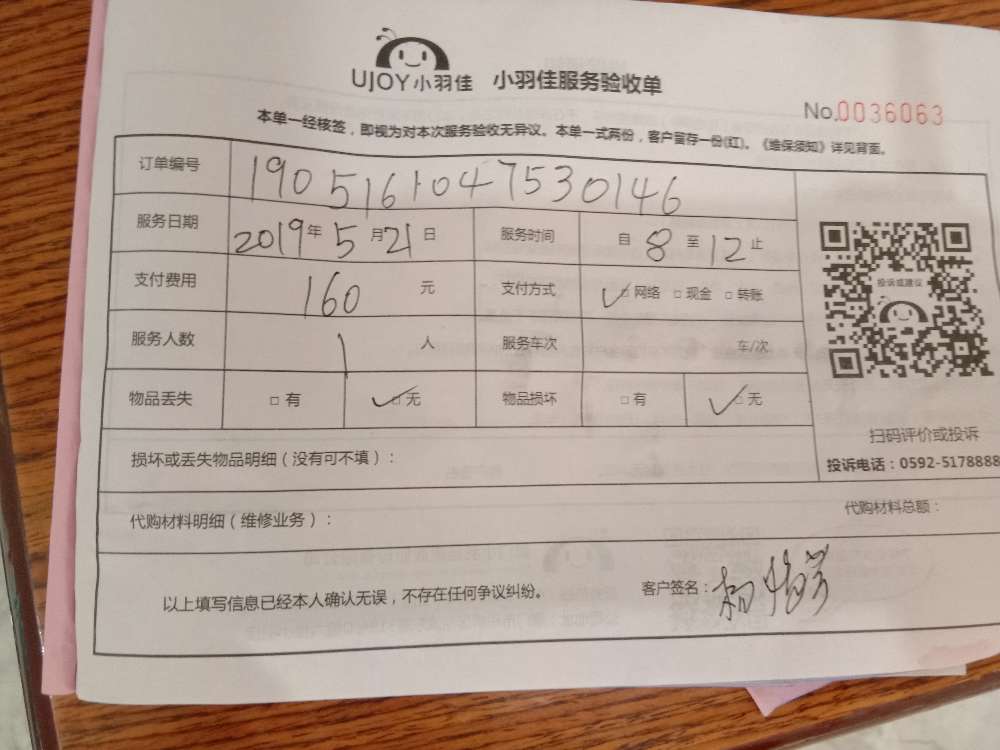 UJOY小羽佳 小羽佳服务验收单
No.0036063
本单一经核签，即视为对本次服务验收无异议。本单一式两份，客户留存一份(红)。《维保须知》详见背面。
订单编号 1905161047530146
服务日期 2019年5月21日 服务时间 自8至12止
支付费用 160元 支付方式 ✓□网络 □现金 □转账
服务人数 1人 服务车次 车/次
物品丢失 □有 ✓□无 物品损坏 □有 ✓□无
投诉或建议
扫码评价或投诉
投诉电话：0592-5178888
损坏或丢失物品明细（没有可不填）：
代购材料明细（维修业务）： 代购材料总额：
以上填写信息已经本人确认无误，不存在任何争议纠纷。 客户签名：